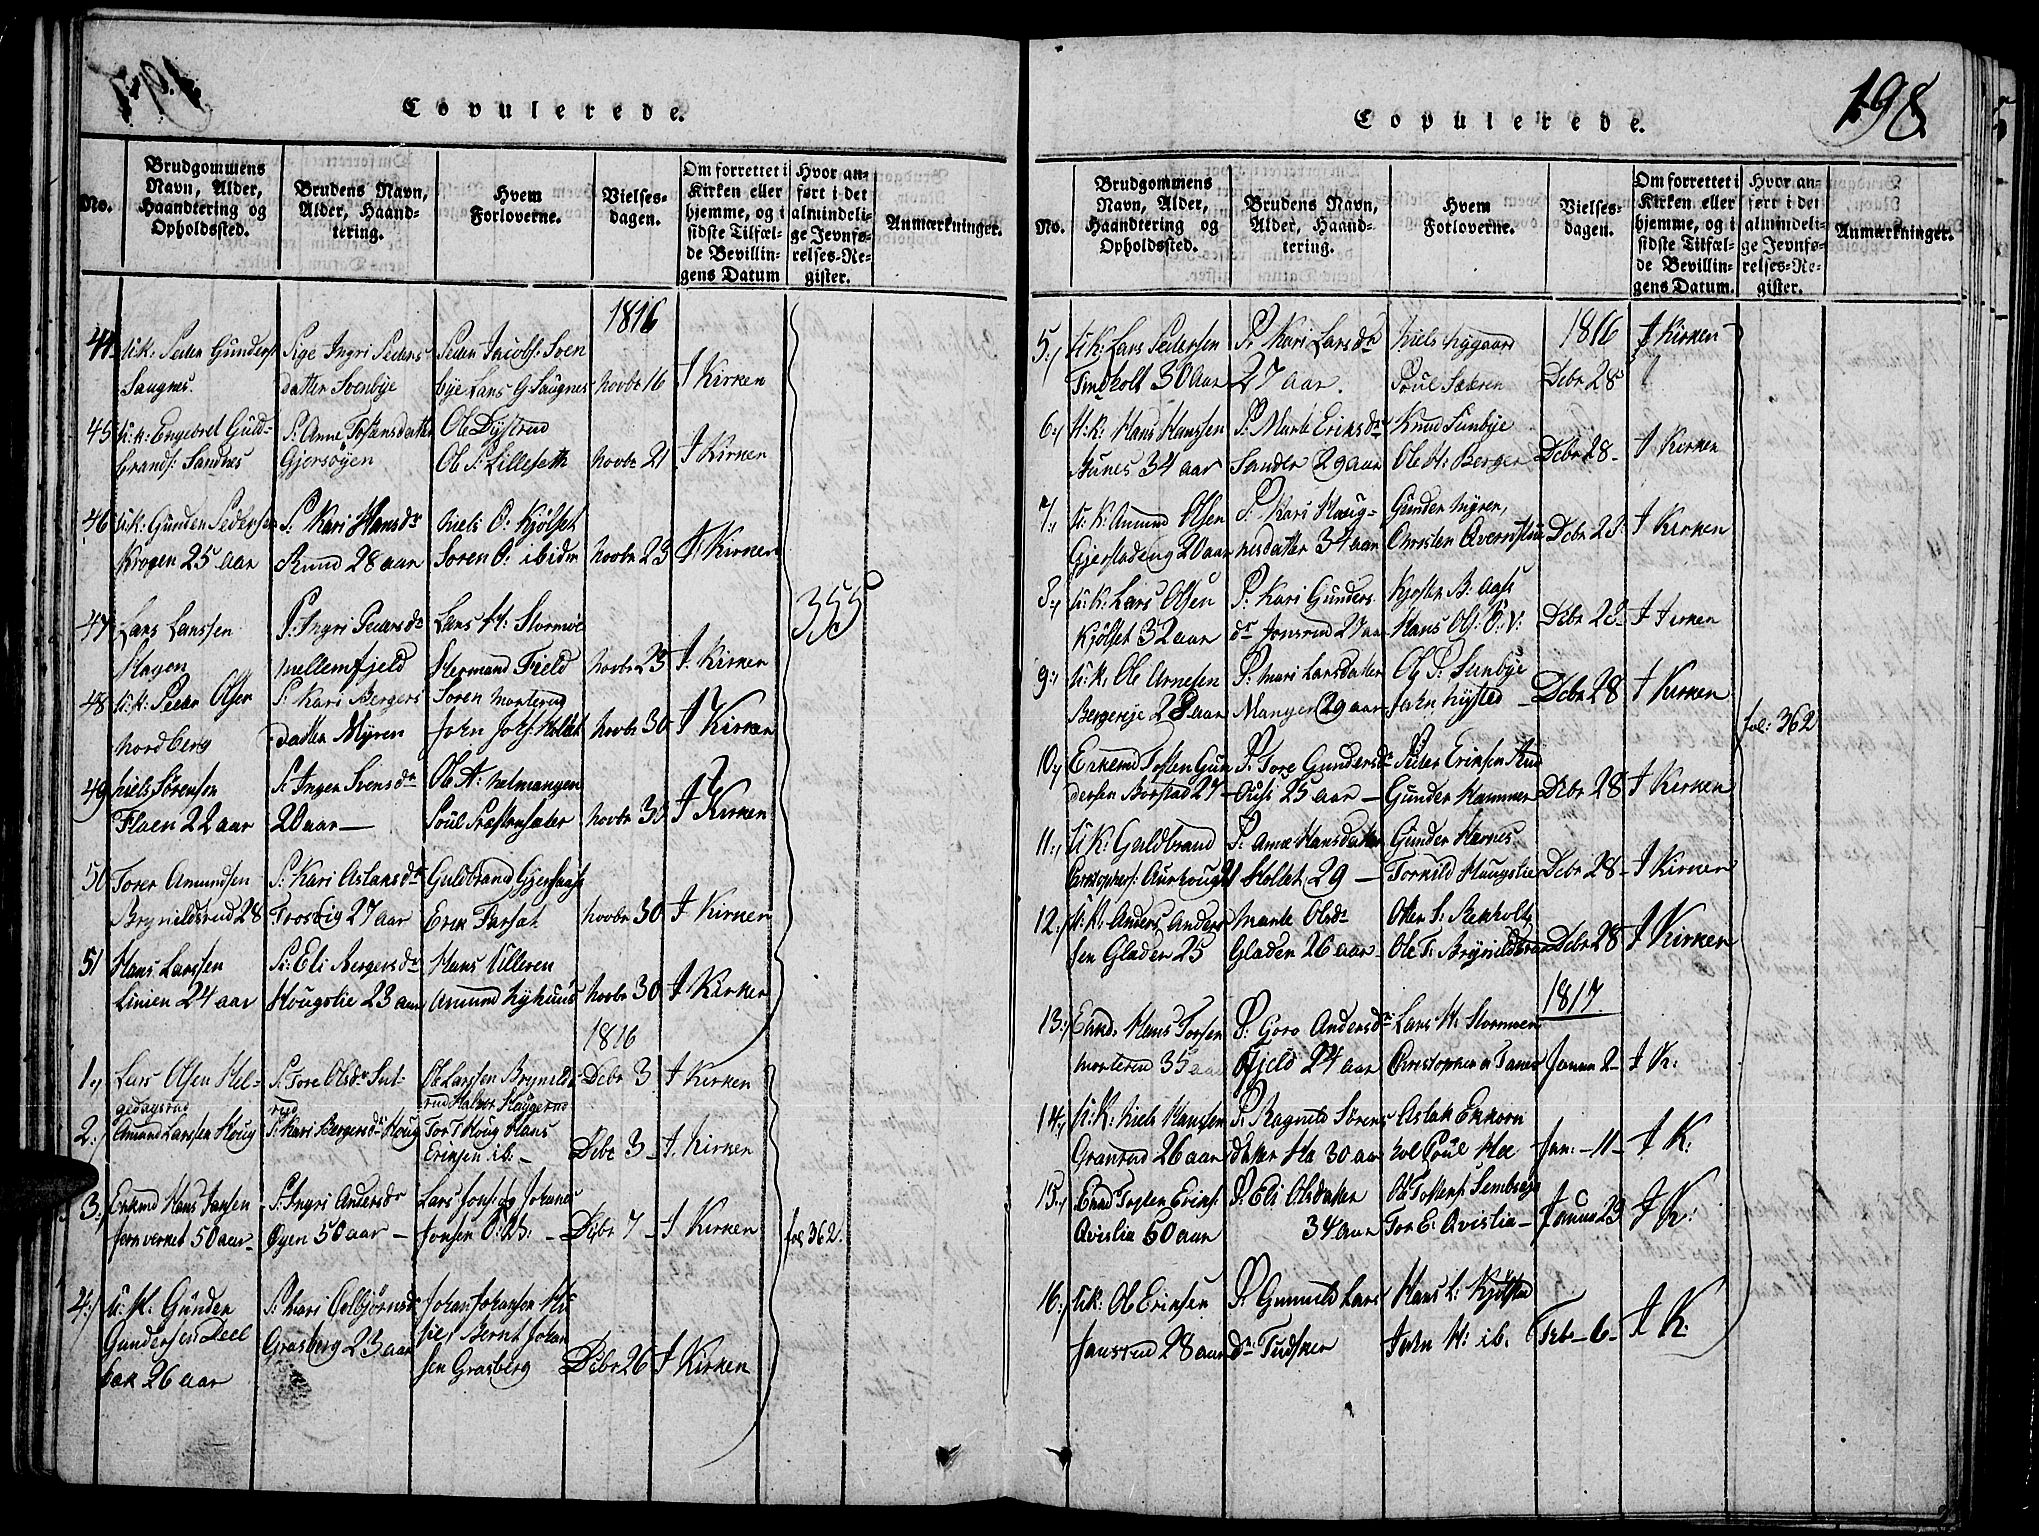 Copulerede.
No.
Brudgommens
Navn, Alder,
Haandtering og
Opholdssted.
Brudens Navn,
Alder, Haand-
tering.
Hvem
Forloverne.
Vielses-
dagen.
Om forrettet i
Kirken eller
hjemme, og i
sidste Tilfæl-
de Bevillin-
gens Datum
Hvor an-
ført i det
almindeli-
ge Jevnfø-
relses-Re-
gister.
Anmærkninger.
1816
44 U:K: Peder Gunders
Saugnes.
Pige Ingri Peders
datter Svenbye
Peder Jacobs: Sven
bye Lars G Saugnes
Novbr 16
I Kirken
45 U:K: Engebret Guld-
brands: Sandnes
P: Anne Tostensdatter
Gjersøyen
Ole Dystrud
Ole P: Lilleseth
Novbr 21
I Kirken
46 U:K: Gunder Pedersen
Krogen 25 aar
P: Kari Hansdr
Rund 28 aar
Niels O: Kjölset
Soren O: ibidm
Novbr 23
I Kirken
47 Lars Larssen
Hagen
P: Ingri Pedersdr
Mellemfjeld
Lars H: Stormoe
Hermand Field
Novbr 23
I Kirken
48 U:K: Peder Olsen
Nordberg
P: Kari Bergers
datter Myren
Soren Morterud
John Jols: Holtet
Novbr 30
I Kirken
49 Niels Sörensen
Floen 22 aar
P: Inger Svensdr
20 aar
Ole A: Melmangen
Poul Præstensæter
Novbr 30
I Kirken
50 Torer Amundsen
Brynildsrud 28
P: Kari Aslaksdr
Frosvig 27 aar
Guldbrand Gjersaas
Erik Farsat
Novbr 30
I Kirken
51 Hans Larssen
Linien 24 aar
P: Eli Bergersdr
Hougslie 23 aar
Hans Ulleren
Amund Nyhuus
Novbr 30
I Kirken
355
1816
1 Lars Olsen Hel-
gedagsrud
P: Tore Olsdr Sut-
rud
Ole Larssen Brynilds
rud Halvor Haugerud
Debr 3
I Kirken
2 Amund Larssen Houg
P: Kari Bergersdr Houg
Tor T Houg Hans
Eriksen ib: -
Debr 3
I Kirken
3 Enkmd Hans Jansen
Jernverket 50 aar
P: Ingri Andersdr
Øyen 50 aar
Lars Jons: og Johanes
Jonsen O: V:
Debr 7
I Kirken
fol 362.
4 U:K: Gunder
Gundersen Deel
bak 26 aar
P: Kari Asbjörnsdr
Grasberg 23 aar
Johan Johansen
Bernt Johan
sen Grasberg
Debr 26
I Kirken
198
Copulerede.
No.
Brudgommens
Navn, Alder,
Haandtering og
Opholdssted.
Brudens Navn,
Alder, Haand-
tering.
Hvem
Forloverne.
Vielses-
dagen.
Om forrettet i
Kirken eller
hjemme, og i
sidste Tilfæl-
de Bevillin-
gens Datum.
Hvor an-
ført i det
almindeli-
ge Jevnfø-
relses-Re-
gister.
Anmærkninger.
1816
5 U:K: Lars Pedersen
Tindholt 30 aar
P: Kari Larsdr
27 aar.
Niels Nygaard
Poul Sætren
Debr 28
I Kirken
6 U:K: Hans Hanssen
Aunes 34 aar
P: Marte Eriksdr
Sander 29 aar
Knud Sunbye
Ole H: Berger
Debr 28
I Kirken
7 U:K: Amund Olsen
Gjerstadeng 20 aar
P: Kari Haag-
nesdatter 34 aar
Gunder Myren,
Christen Overnstuu
Debr 28
I Kirken
8 U:K: Lars Olsen
Kjölset 32 aar
P: Kari Gunders
dr Jonsrud 27 aar
Kjosten B: Aass
Hans Ols: O: V:
Debr 28
I Kirken
9 U:K: Ole Arnesen
Bergereje 28 aar
P: Mari Larsdatter
Mangen 29 aar
Ole P: Sunbye
John Nysted
Debr 28
I Kirken
fol: 362
10 Enkemd Tosten Gun
dersen Borstad 27
P: Tore Gundersdr
25 aar
Peder Eriksen
Gunder Hammer
Debr 28
I Kirken
11 U:K: Guldbrand
Christophers:
P: Anne Hansdatter
Holtet 29
Gunder Harnes
Torkild Haugslie
Debr 28
I Kirken
12 U:K: Anders Anders
sen Gladen 25
Marte Olsdr
Gladen 26 aar
Otter S:
Ole T: Brynildsrud
Debr 28
I Kirken
1817
13 Enkd: Hans Torsen
Morterud 35 aar
P: Goro Andersdr
Fjeld 24 aar
Lars H: Stormoen
Christopher
Januar 2
I K:
14 U:K: Niels Hanssen
Gransrud 26 aar
P: Ragnild Sörens
datter Ha 30 aar
Aslak Enkorn
vol Poul Hoe
Jan: - 11 -
I K:
15 Enkd Tosten Eriks:
Qvislia 50 aar
P: Eli Olsdatter
34 aar
Ole Tostens: Sembeye
Tor E: Qvislia
Januar 23
I K:
16 U:K: Ole Eriksen
Jansrud 28 aar
P: Gunnild Lars
dr Tudsker
Hans L: Kjölstad
John H: ib.
Febr - 6 -
I K: